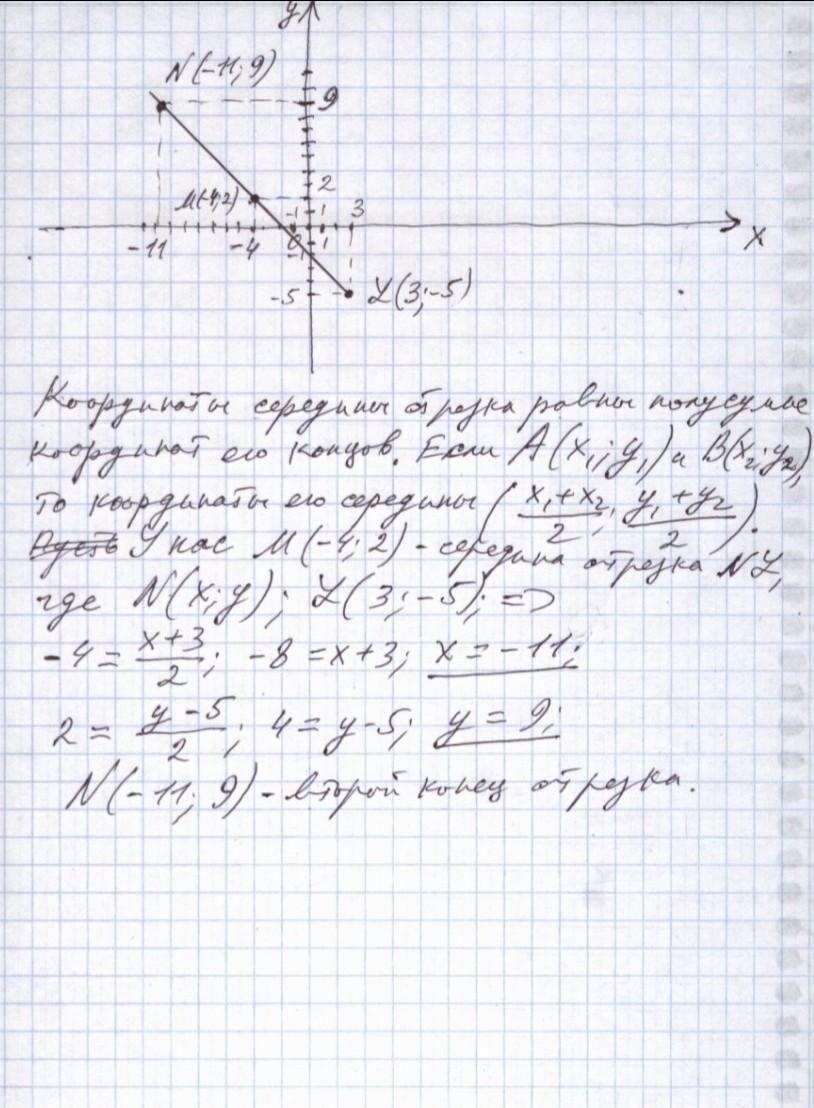 y
N(-11; 9)
9
M(-4; 2)
2
-1
1
3
-11
-4
0
1
x
-1
-5
L(3; -5)
Координаты середины отрезка равны полусумме
координат его концов. Если A(x₁; y₁) и B(x₂; y₂),
то координаты его середины ( (x₁ + x₂)/2 ; (y₁ + y₂)/2 ).
Пусть У нас M(-4; 2) - середина отрезка NL,
где N(x; y); L(3; -5); =>
-4 = (x+3)/2; -8 = x+3; x = -11;
2 = (y-5)/2; 4 = y-5; y = 9;
N(-11; 9) - второй конец отрезка.